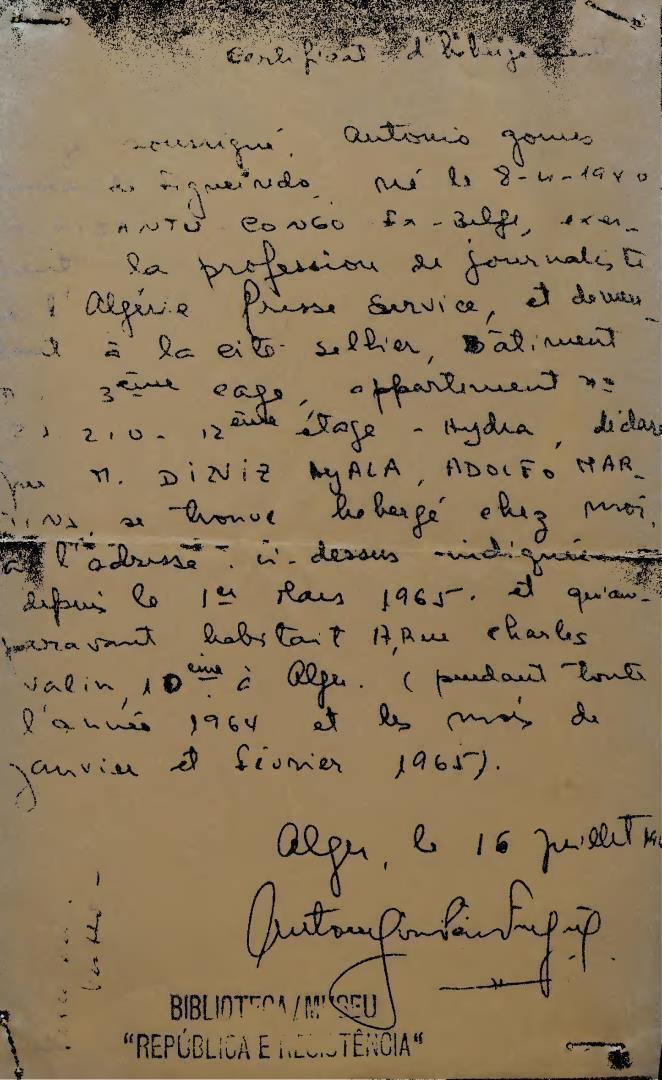 Certificat d'hébergement
soussigné, Antonio Gomes
de Figueirdo, né le
CONGO Ex-Belge, exer-
la profession de journaliste
l'Algérie Presse Service, et demeu-
à la cité sellier, Bâtiment
3ème cage, appartement n°
210- 12ème étage - Hydra, déclare
que M. DINIZ AyALA, ADOLFO MAR-
TINS, se trouve hebergé chez moi,
à l'adresse ci-dessus indiquée
depuis le 1er Mars 1965. et qu'au-
paravant habitait 17, Rue Charles
Valin, 10ème à Alger. (pendant toute
l'année 1964 et les mois de
janvier et février 1965).
Alger, le 16 juillet
BIBLIOTECA/MUSEU
"REPÚBLICA E RESISTÊNCIA"